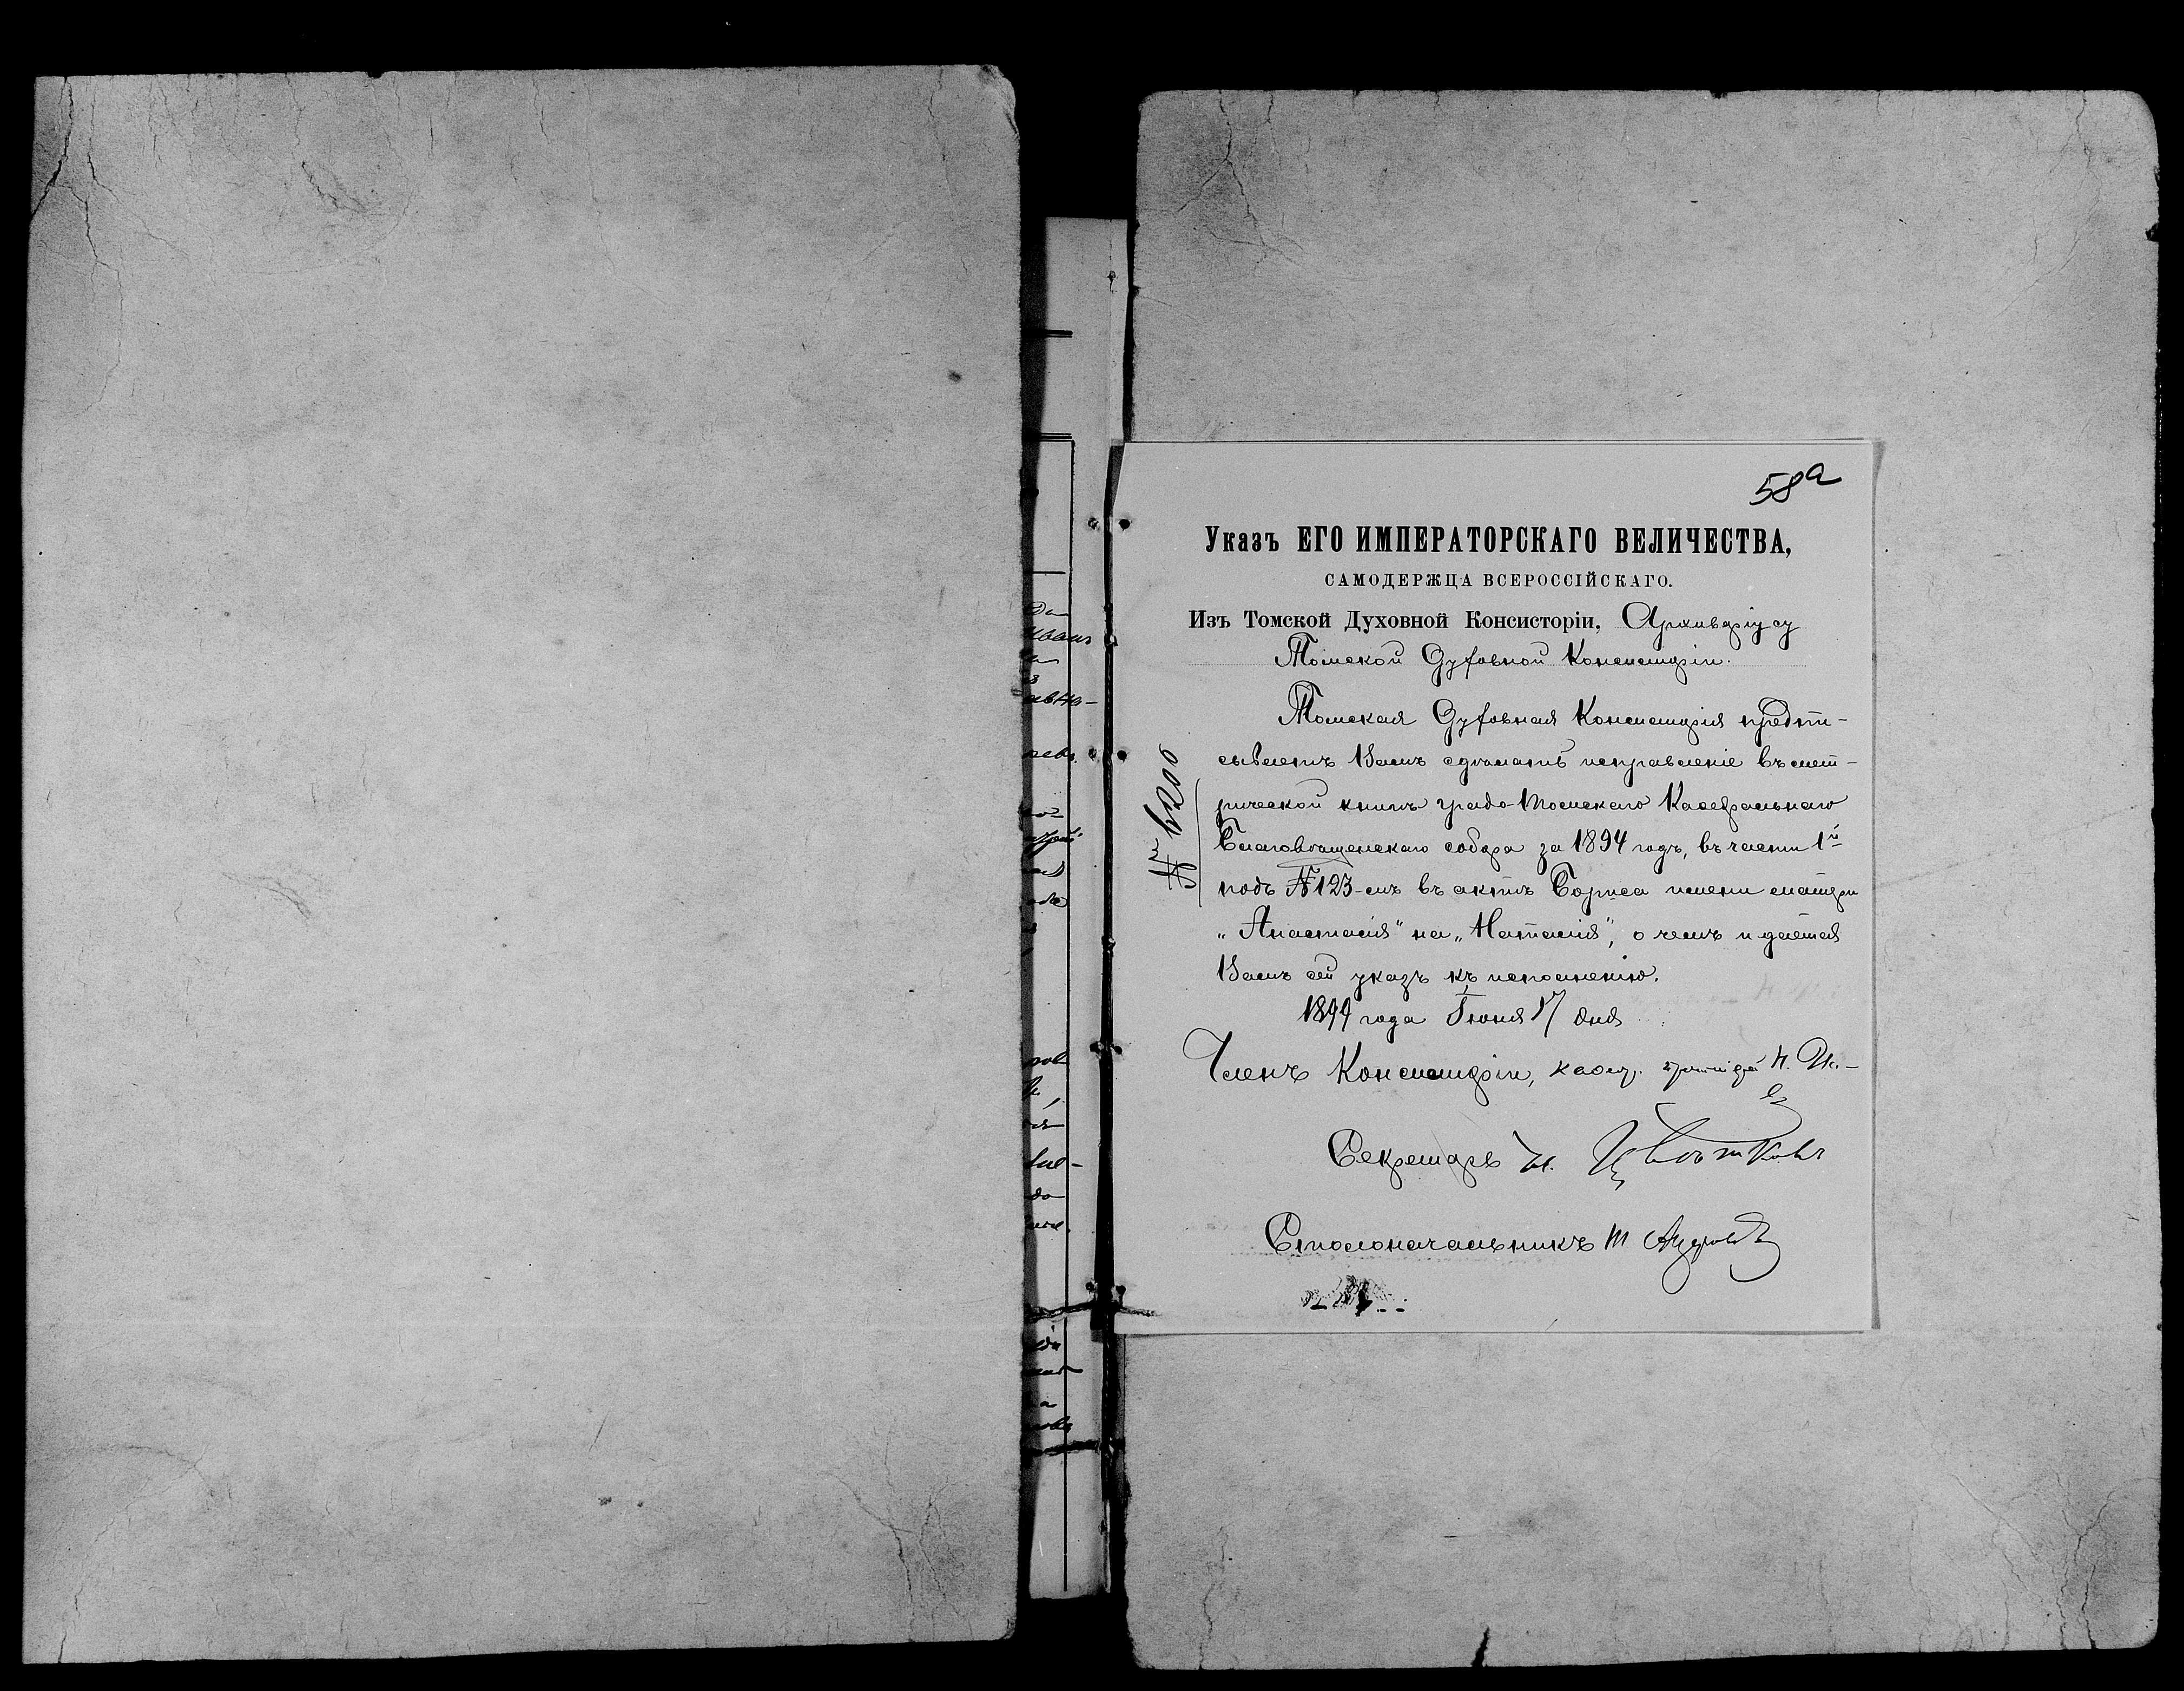 58а
Указъ ЕГО ИМПЕРАТОРСКАГО ВЕЛИЧЕСТВА,
САМОДЕРЖЦА ВСЕРОССІЙСКАГО.
Изъ Томской Духовной Консисторіи, Архиваріусу
Томской Духовной Консисторіи.
Томская Духовная Консисторія предпи-
сываетъ Вамъ сдѣлать исправленіе въ мет-
рической книгѣ градо-Томскаго Каѳедральнаго
Благовѣщенскаго собора за 1894 годъ, въ части 1й
подъ № 123-мъ въ актѣ Бориса имени матери
„Анастасія" на „Наталія", о чемъ и дается
Вамъ сей указъ къ исполненію.
1899 года Іюня 17 дня
№ 6200
Членъ Консисторіи, каѳедр. протоіерей Н.
Секретарь И. Цвѣтковъ
Столоначальникъ